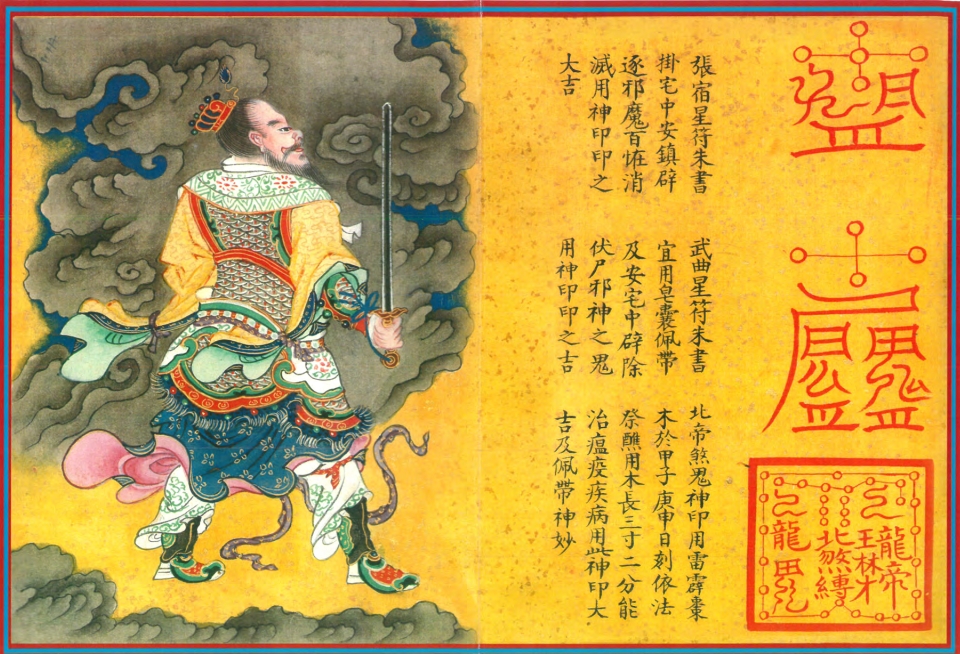 張宿星符朱書
掛宅中安鎮辟
逐邪魔百恠消
滅用神印印之
大吉
武曲星符朱書
宜用皂囊佩帶
及安宅中辟除
伏尸邪神之鬼
用神印印之吉
北帝煞鬼神印用雷霹棗
木於甲子庚申日刻依法
祭醮用木長三寸二分能
治瘟疫疾病用此神印大
吉及佩帶神妙
龍帝
王林才
北煞縛
龍